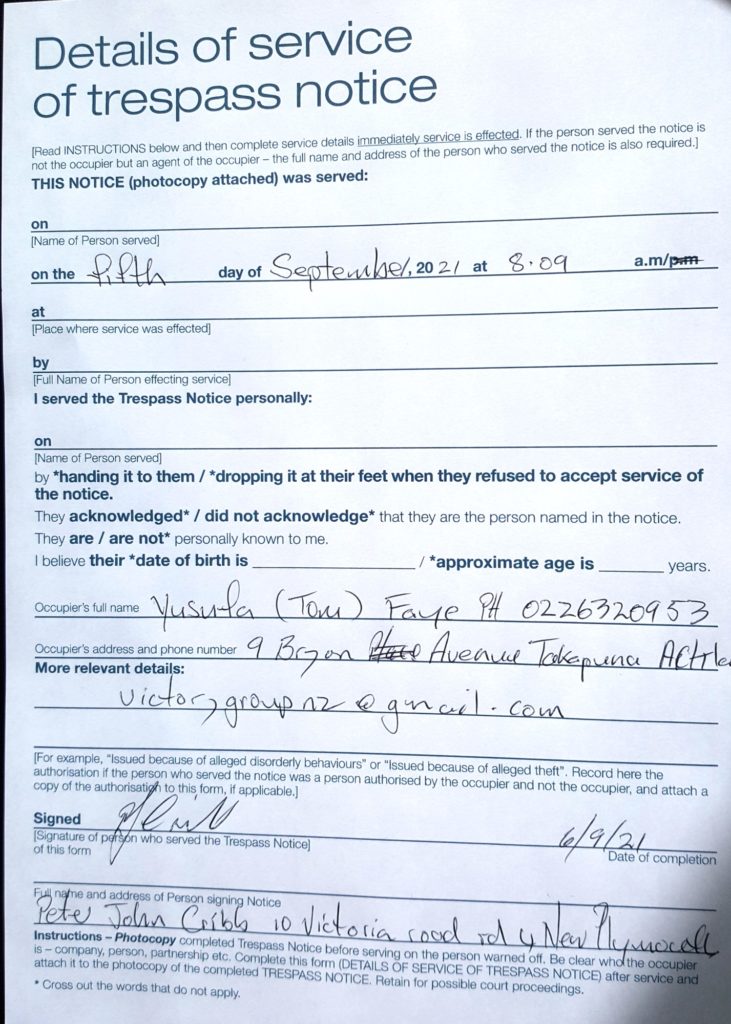 Details of service
of trespass notice
[Read INSTRUCTIONS below and then complete service details immediately service is effected. If the person served the notice is
not the occupier but an agent of the occupier – the full name and address of the person who served the notice is also required.]
THIS NOTICE (photocopy attached) was served:
on
[Name of Person served]
on the fifth day of September, 2021 at 8.09 a.m/p.m
at
[Place where service was effected]
by
[Full Name of Person effecting service]
I served the Trespass Notice personally:
on
[Name of Person served]
by *handing it to them / *dropping it at their feet when they refused to accept service of
the notice.
They acknowledged* / did not acknowledge* that they are the person named in the notice.
They are / are not* personally known to me.
I believe their *date of birth is / *approximate age is years.
Occupier's full name Yusufa (Tom) Faye PH 0226320953
Occupier's address and phone number 9 Bryon Avenue Takapuna
More relevant details:
victorygroupnz@gmail.com
[For example, "Issued because of alleged disorderly behaviours" or "Issued because of alleged theft". Record here the
authorisation if the person who served the notice was a person authorised by the occupier and not the occupier, and attach a
copy of the authorisation to this form, if applicable.]
Signed 6/9/21
[Signature of person who served the Trespass Notice] Date of completion
of this form
Full name and address of Person signing Notice
Pete John Cribb 10 Victoria road rd 4 New Plymouth
Instructions – Photocopy completed Trespass Notice before serving on the person warned off. Be clear who the occupier
is – company, person, partnership etc. Complete this form (DETAILS OF SERVICE OF TRESPASS NOTICE) after service and
attach it to the photocopy of the completed TRESPASS NOTICE. Retain for possible court proceedings.
* Cross out the words that do not apply.